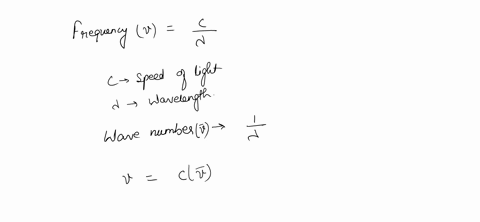 Frequency (ν) = c/λ
c → Speed of light
λ → Wavelength.
Wave number (ν̄) → 1/λ
ν = c(ν̄)